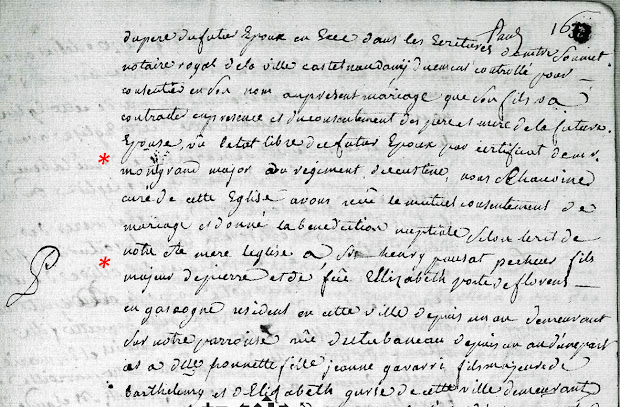 16
Paul
du pere du futur Epoux en date dans les Ecritures de mtre Sonnet
notaire royal de la ville castelnaudary duement controllé pour
consentir en son nom au present mariage que son fils va
contracter en presence et du consentement des pere et mere de la future
Epouse, vu l'etat libre du futur Epoux par certificat de mr
montgrand major du regiment de nous Chauvine
curé de cette Eglise avons reçu le mutuel consentement de
mariage et donné la benediction nuptiale selon le rit de
notre ste mere leglise a sr henry pausat pecheur fils
majeur de pierre et de füe Ellizabeth porte de florens
en gascogne resident en cette ville depuis un an demeurant
sur notre parroisse rüe du tubaneau depuis un an d'une part
et a dlle ponnette félé jeanne gavarri fille majeure de
Barthelemy et d'Elizabeth de cette ville demeurant